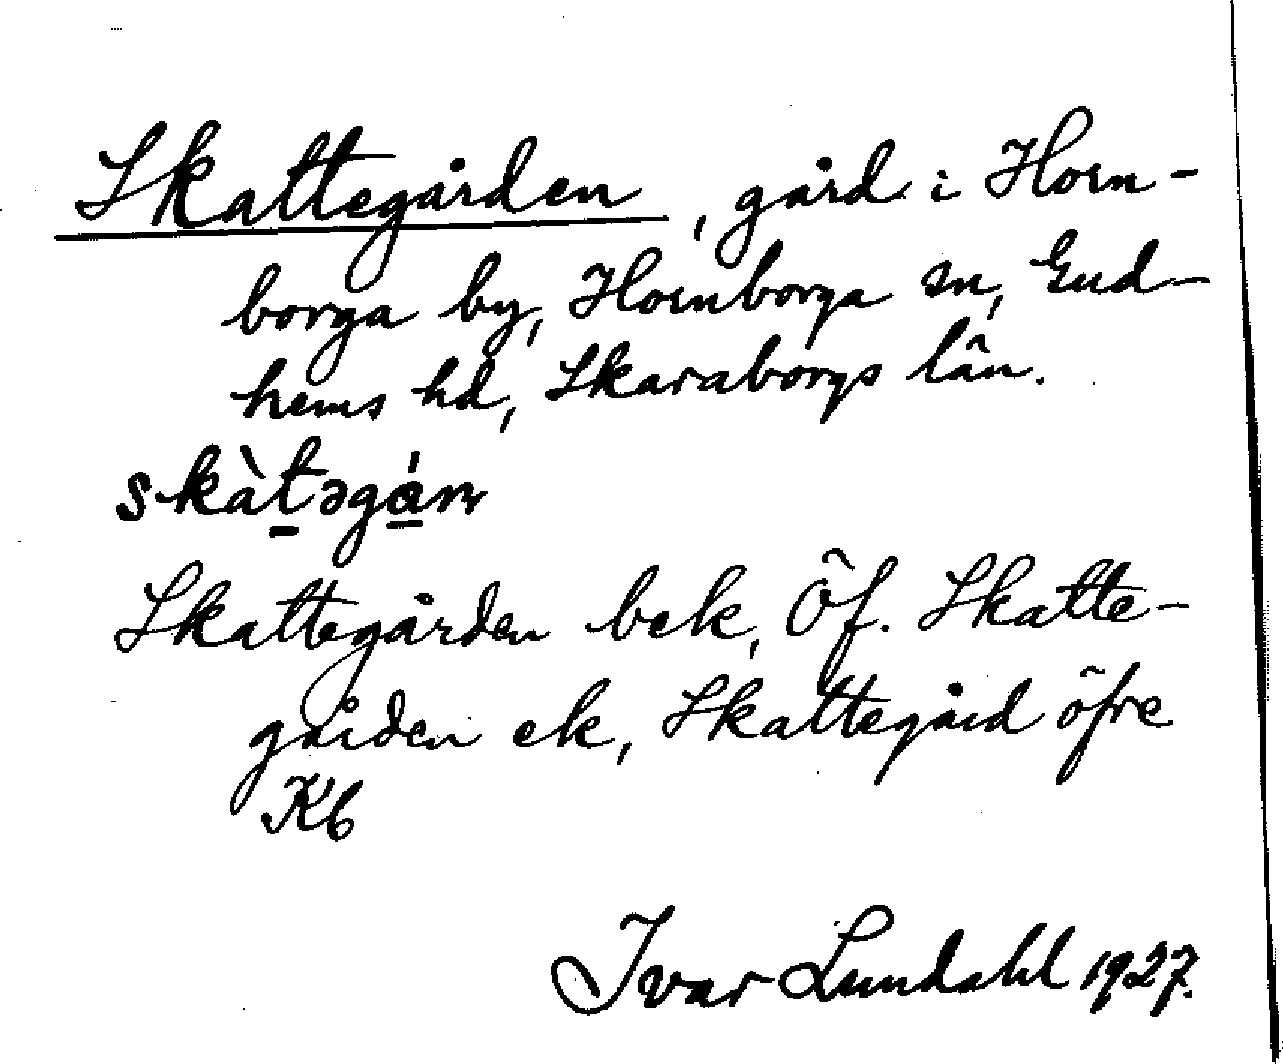 Skattegården, gård i Horn-
borga by, Hornborga sn, Gud-
hems hd, Skaraborgs län.
skàt̠əgá̠rn
Skattegården bek, Öf. Skatte-
gården ek, Skattegård öfre
Kb
Ivar Lundahl 1927.